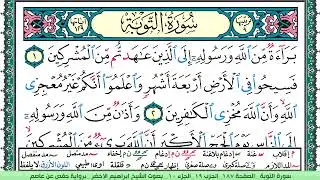 سُورَةُ التَّوْبَةِ
بَرَآءَةٌ مِّنَ ٱللَّهِ وَرَسُولِهِۦٓ إِلَى ٱلَّذِينَ عَٰهَدتُّم مِّنَ ٱلْمُشْرِكِينَ ١
فَسِيحُوا۟ فِى ٱلْأَرْضِ أَرْبَعَةَ أَشْهُرٍ وَٱعْلَمُوٓا۟ أَنَّكُمْ غَيْرُ مُعْجِزِى
ٱللَّهِ وَأَنَّ ٱللَّهَ مُخْزِى ٱلْكَٰفِرِينَ ٢ وَأَذَٰنٌ مِّنَ ٱللَّهِ وَرَسُولِهِۦٓ
إِلَى ٱلنَّاسِ يَوْمَ ٱلْحَجِّ ٱلْأَكْبَرِ أَنَّ ٱللَّهَ بَرِىٓءٌ مِّنَ ٱلْمُشْرِكِينَ
سورة التوبة الصفحة ١٨٧ الحزب ١٩ الجزء ١٠ بصوت الشيخ إبراهيم الأخضر برواية حفص عن عاصم